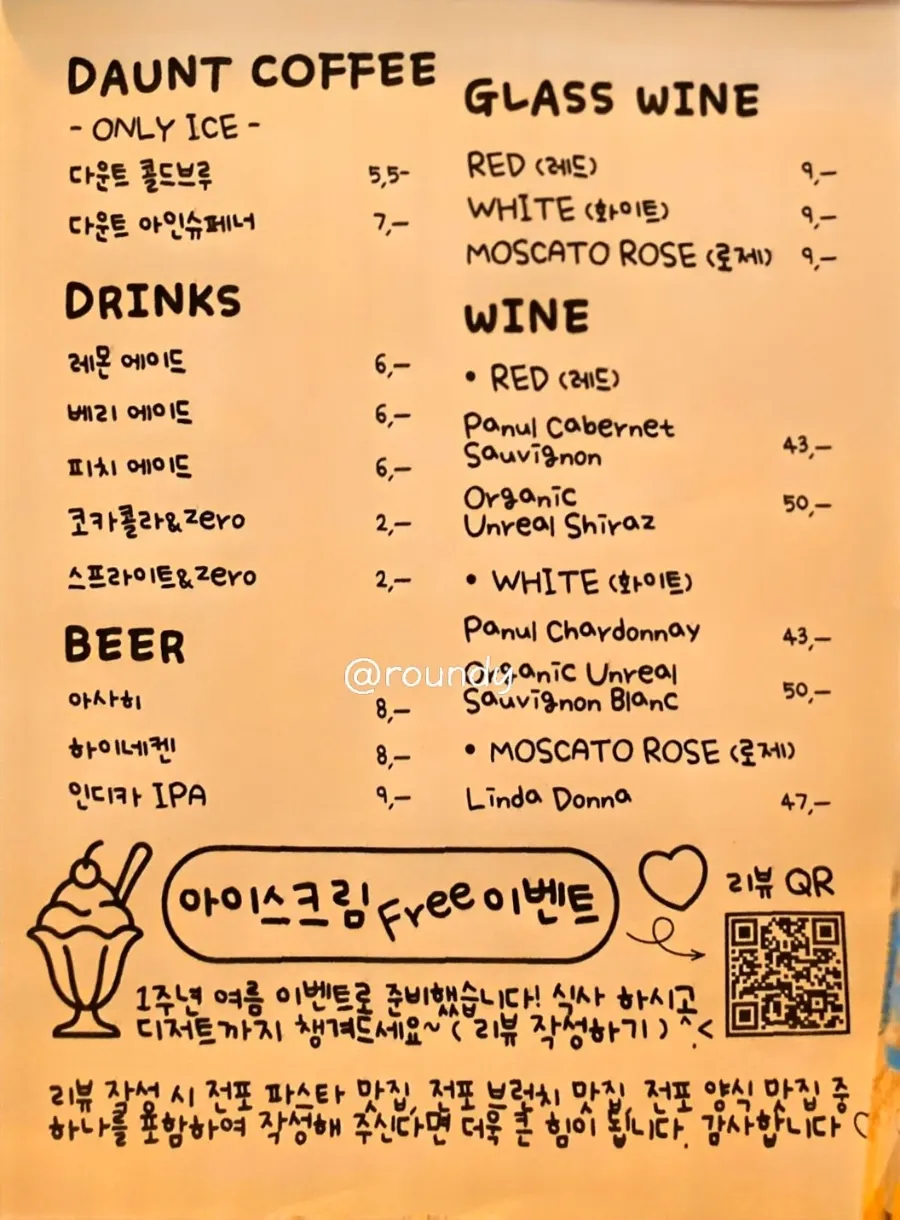 DAUNT COFFEE
- ONLY ICE -
다운트 콜드브루 5,5-
다운트 아인슈페너 7,—
DRINKS
레몬 에이드 6,—
베리 에이드 6,—
피치 에이드 6,—
코카콜라&zero 2,—
스프라이트&zero 2,—
BEER
아사히 8,—
하이네켄 8,—
인디카 IPA 9,—
GLASS WINE
RED (레드) 9,—
WHITE (화이트) 9,—
MOSCATO ROSE (로제) 9,—
WINE
• RED (레드)
Panul Cabernet
Sauvignon 43,—
Organic
Unreal Shiraz 50,—
• WHITE (화이트)
Panul Chardonnay 43,—
Organic Unreal
Sauvignon Blanc 50,—
• MOSCATO ROSE (로제)
Linda Donna 47,—
@roundy
아이스크림 Free 이벤트
리뷰 QR
1주년 여름 이벤트로 준비했습니다! 식사 하시고
디저트까지 챙겨드세요~ ( 리뷰 작성하기 ) ^.<
리뷰 작성 시 전포 파스타 맛집, 전포 브런치 맛집, 전포 양식 맛집 중
하나를 포함하여 작성해 주신다면 더욱 큰 힘이 됩니다. 감사합니다 ♡